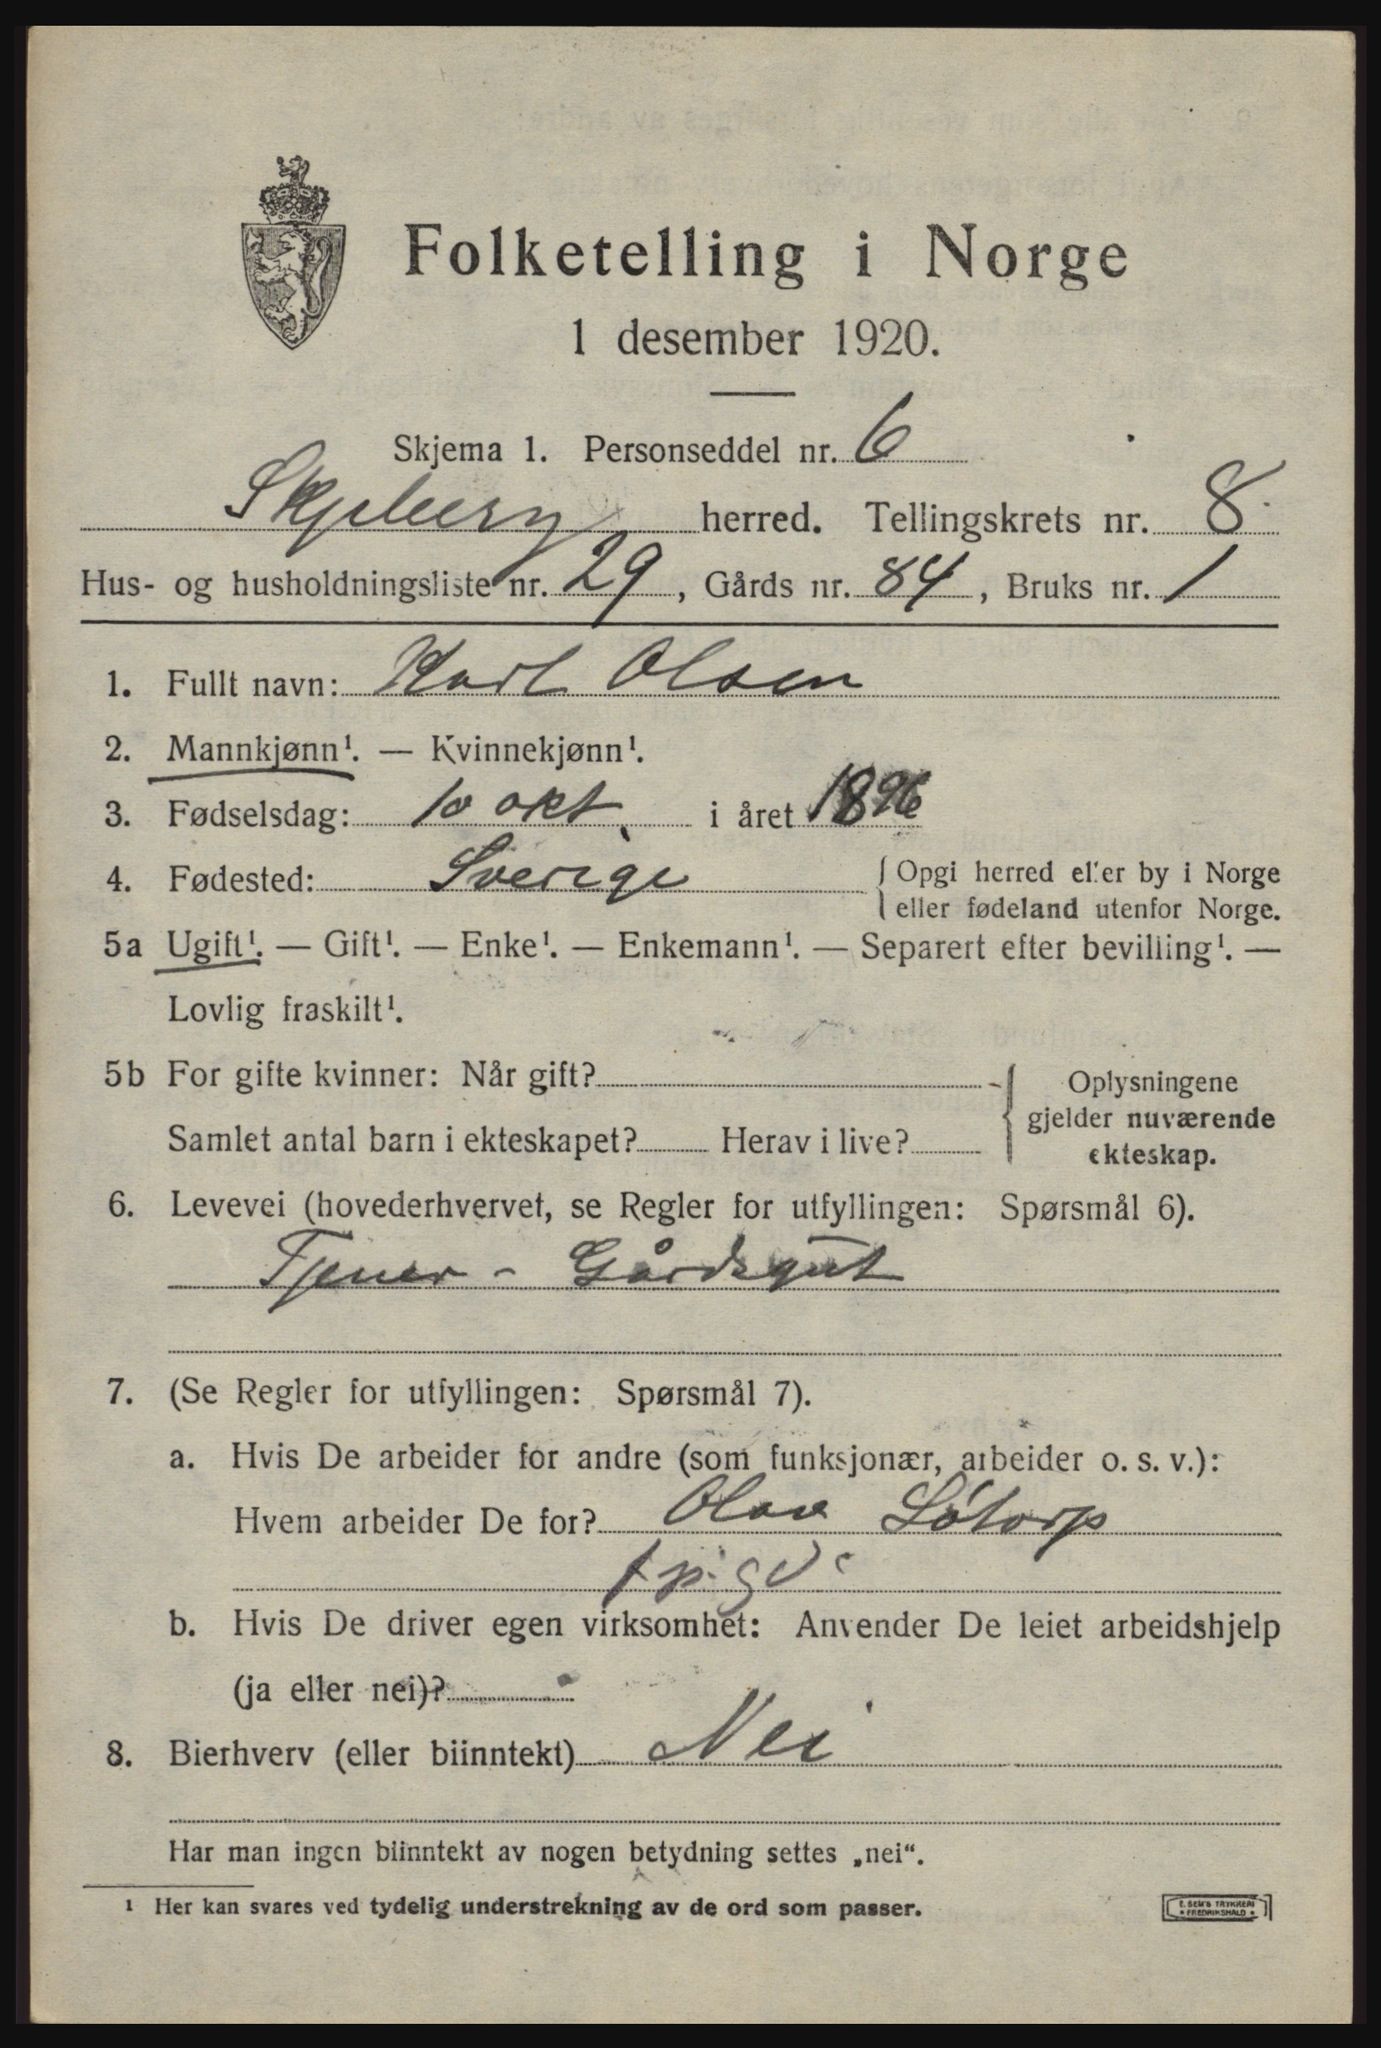 Folketelling i Norge
1 desember 1920.
Skjema 1. Personseddel nr. 6
Skjeberg herred. Tellingskrets nr. 8
Hus- og husholdningsliste nr. 29, Gårds nr. 84, Bruks nr. 1
1. Fullt navn: Karl Olsen
2. Mannkjønn¹. — Kvinnekjønn¹.
3. Fødselsdag: 10 okt. i året 1896
4. Fødested: Sverige { Opgi herred eller by i Norge
eller fødeland utenfor Norge.
5a Ugift¹. — Gift¹. — Enke¹. — Enkemann¹. — Separert efter bevilling¹. —
Lovlig fraskilt¹.
5b For gifte kvinner: Når gift? { Oplysningene
gjelder nuværende
Samlet antal barn i ekteskapet? Herav i live?
ekteskap.
6. Levevei (hovederhvervet, se Regler for utfyllingen: Spørsmål 6).
Tjener - Gårdsgut
7. (Se Regler for utfyllingen: Spørsmål 7).
a. Hvis De arbeider for andre (som funksjonær, arbeider o. s. v.):
Hvem arbeider De for? Olav Løtorp
b. Hvis De driver egen virksomhet: Anvender De leiet arbeidshjelp
(ja eller nei)?
8. Bierhverv (eller biinntekt) Nei
Har man ingen biinntekt av nogen betydning settes „nei“.
¹ Her kan svares ved tydelig understrekning av de ord som passer.
E. SEM'S TRYKKERI
• FREDRIKSHALD •